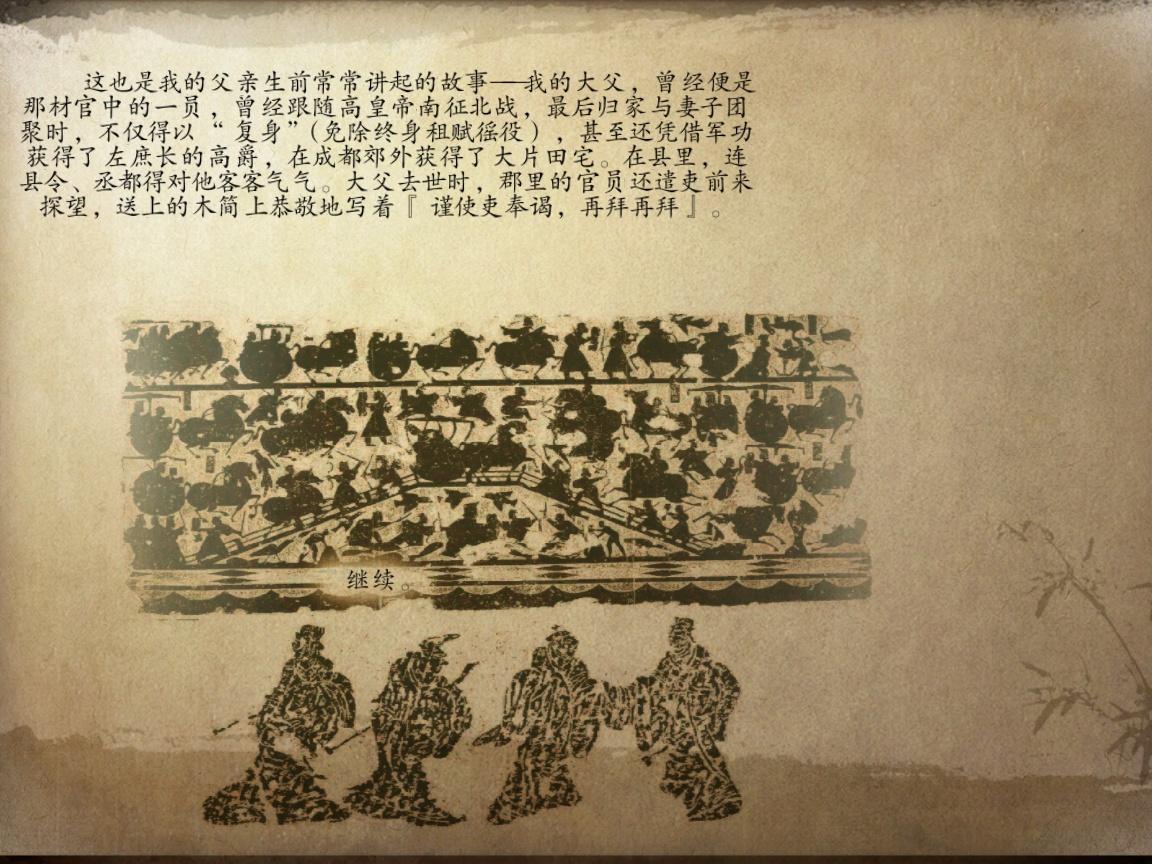 这也是我的父亲生前常常讲起的故事——我的大父，曾经便是
那材官中的一员，曾经跟随高皇帝南征北战，最后归家与妻子团
聚时，不仅得以“复身”（免除终身租赋徭役），甚至还凭借军功
获得了左庶长的高爵，在成都郊外获得了大片田宅。在县里，连
县令、丞都得对他客客气气。大父去世时，郡里的官员还遣吏前来
探望，送上的木简上恭敬地写着『谨使吏奉谒，再拜再拜』。
继续。